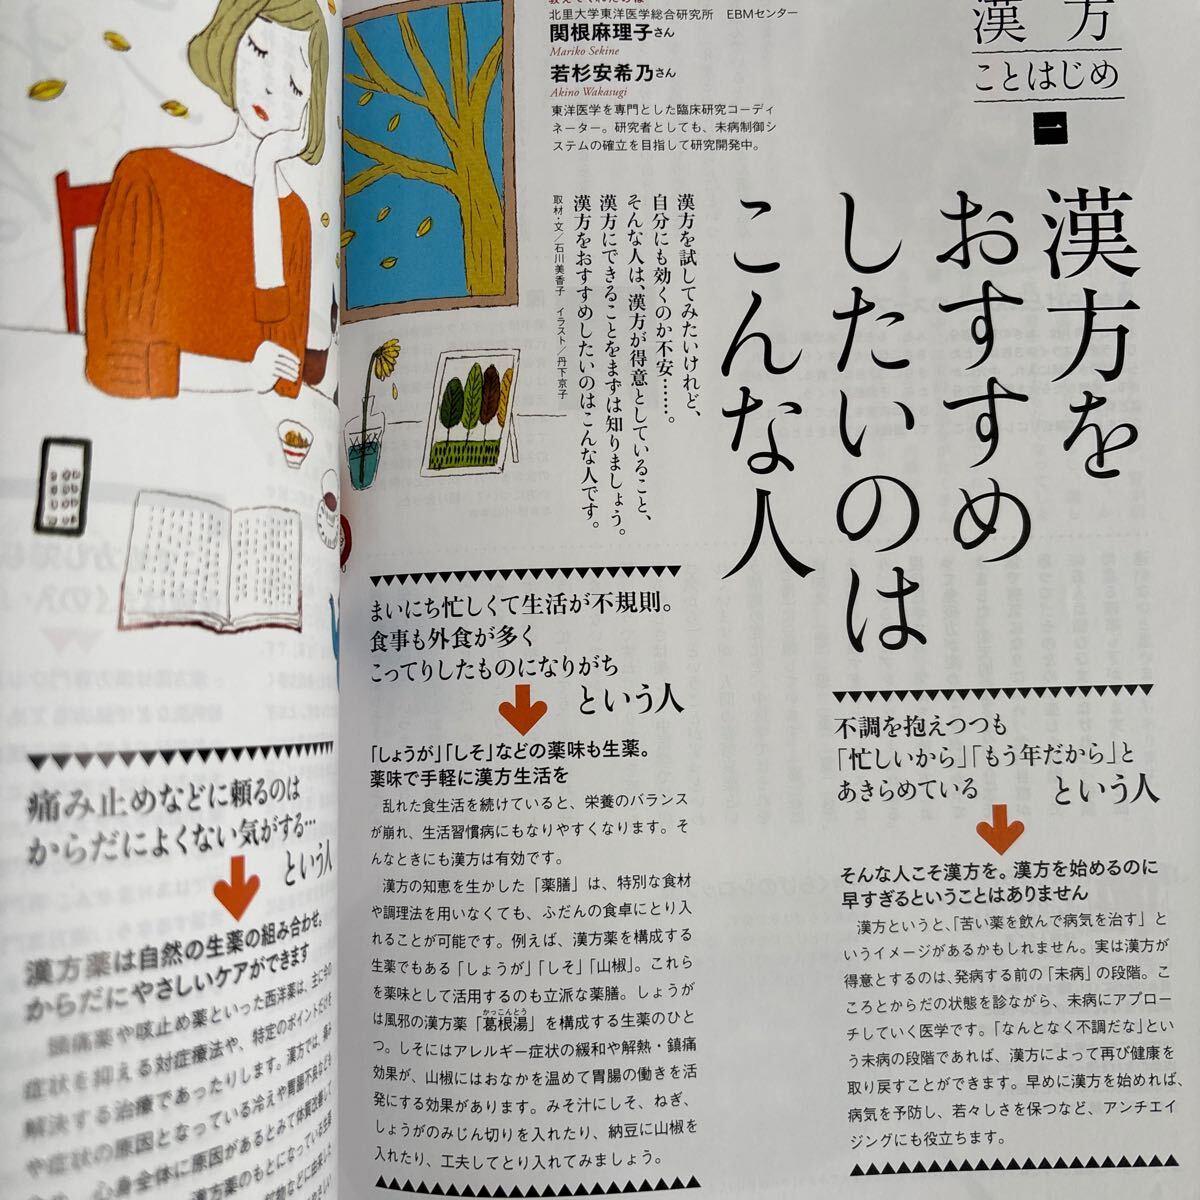 漢方
ことはじめ
一
漢方を
おすすめ
したいのは
こんな人
北里大学東洋医学総合研究所　EBMセンター
関根麻理子さん
Mariko Sekine
若杉安希乃さん
Akino Wakasugi
東洋医学を専門とした臨床研究コーディ
ネーター。研究者としても、未病制御シ
ステムの確立を目指して研究開発中。
漢方を試してみたいけれど、
自分にも効くのか不安……。
そんな人は、漢方が得意としていること、
漢方にできることをまずは知りましょう。
漢方をおすすめしたいのはこんな人です。
取材・文／石川美香子　イラスト／丹下京子
不調を抱えつつも
「忙しいから」「もう年だから」と
あきらめている
という人
そんな人こそ漢方を。漢方を始めるのに
早すぎるということはありません
漢方というと、「苦い薬を飲んで病気を治す」と
いうイメージがあるかもしれません。実は漢方が
得意とするのは、発病する前の「未病」の段階。こ
ころとからだの状態を診ながら、未病にアプロー
チしていく医学です。「なんとなく不調だな」とい
う未病の段階であれば、漢方によって再び健康を
取り戻すことができます。早めに漢方を始めれば、
病気を予防し、若々しさを保つなど、アンチエイ
ジングにも役立ちます。
まいにち忙しくて生活が不規則。
食事も外食が多く
こってりしたものになりがち
という人
「しょうが」「しそ」などの薬味も生薬。
薬味で手軽に漢方生活を
乱れた食生活を続けていると、栄養のバランス
が崩れ、生活習慣病にもなりやすくなります。そ
んなときにも漢方は有効です。
漢方の知恵を生かした「薬膳」は、特別な食材
や調理法を用いなくても、ふだんの食卓にとり入
れることが可能です。例えば、漢方薬を構成する
生薬でもある「しょうが」「しそ」「山椒」。これら
を薬味として活用するのも立派な薬膳。しょうが
は風邪の漢方薬「葛根湯」を構成する生薬のひと
かっこんとう
つ。しそにはアレルギー症状の緩和や解熱・鎮痛
効果が、山椒にはおなかを温めて胃腸の働きを活
発にする効果があります。みそ汁にしそ、ねぎ、
しょうがのみじん切りを入れたり、納豆に山椒を
入れたり、工夫してとり入れてみましょう。
痛み止めなどに頼るのは
からだによくない気がする…
という人
漢方薬は自然の生薬の組み合わせ。
からだにやさしいケアができます
頭痛薬や咳止め薬といった西洋薬は、主に今の
症状を抑える対症療法や、特定のポイントだけを
解決する治療であったりします。漢方では、痛み
や症状の原因となっている冷えや胃腸不良なども